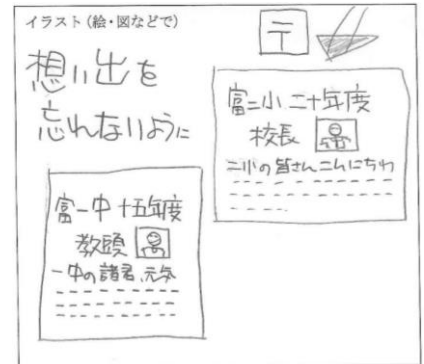 イラスト（絵・図などで）
〒
想い出を
忘れないように
富二小 二十年度
校長
二小の皆さんこんにちわ
富一中 十五年度
教頭
一中の諸君、元気